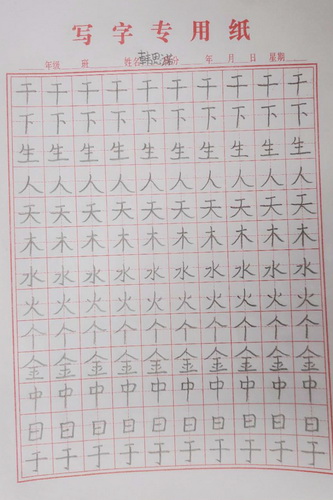 写字专用纸
年级 班 姓名 分 年 月 日 星期
干 干 干 干 干 干 干 干 干 干
下 下 下 下 下 下 下 下 下 下
生 生 生 生 生 生 生 生 生 生
人 人 人 人 人 人 人 人 人 人
天 天 天 天 天 天 天 天 天 天
木 木 木 木 木 木 木 木 木 木
水 水 水 水 水 水 水 水 水 水
火 火 火 火 火 火 火 火 火 火
个 个 个 个 个 个 个 个 个 个
金 金 金 金 金 金 金 金 金 金
中 中 中 中 中 中 中 中 中 中
日 日 日 日 日 日 日 日 日 日
于 于 于 于 于 于 于 于 于 于